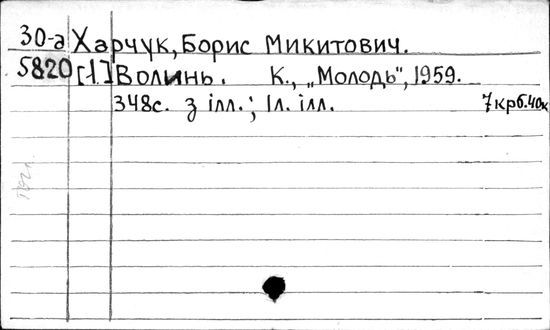 30-а Харчук, Борис Микитович.
5820 [1.] Волинь. К., „Молодь", 1959.
348с. з ілл.; 1л. ілл. 7крб.40к